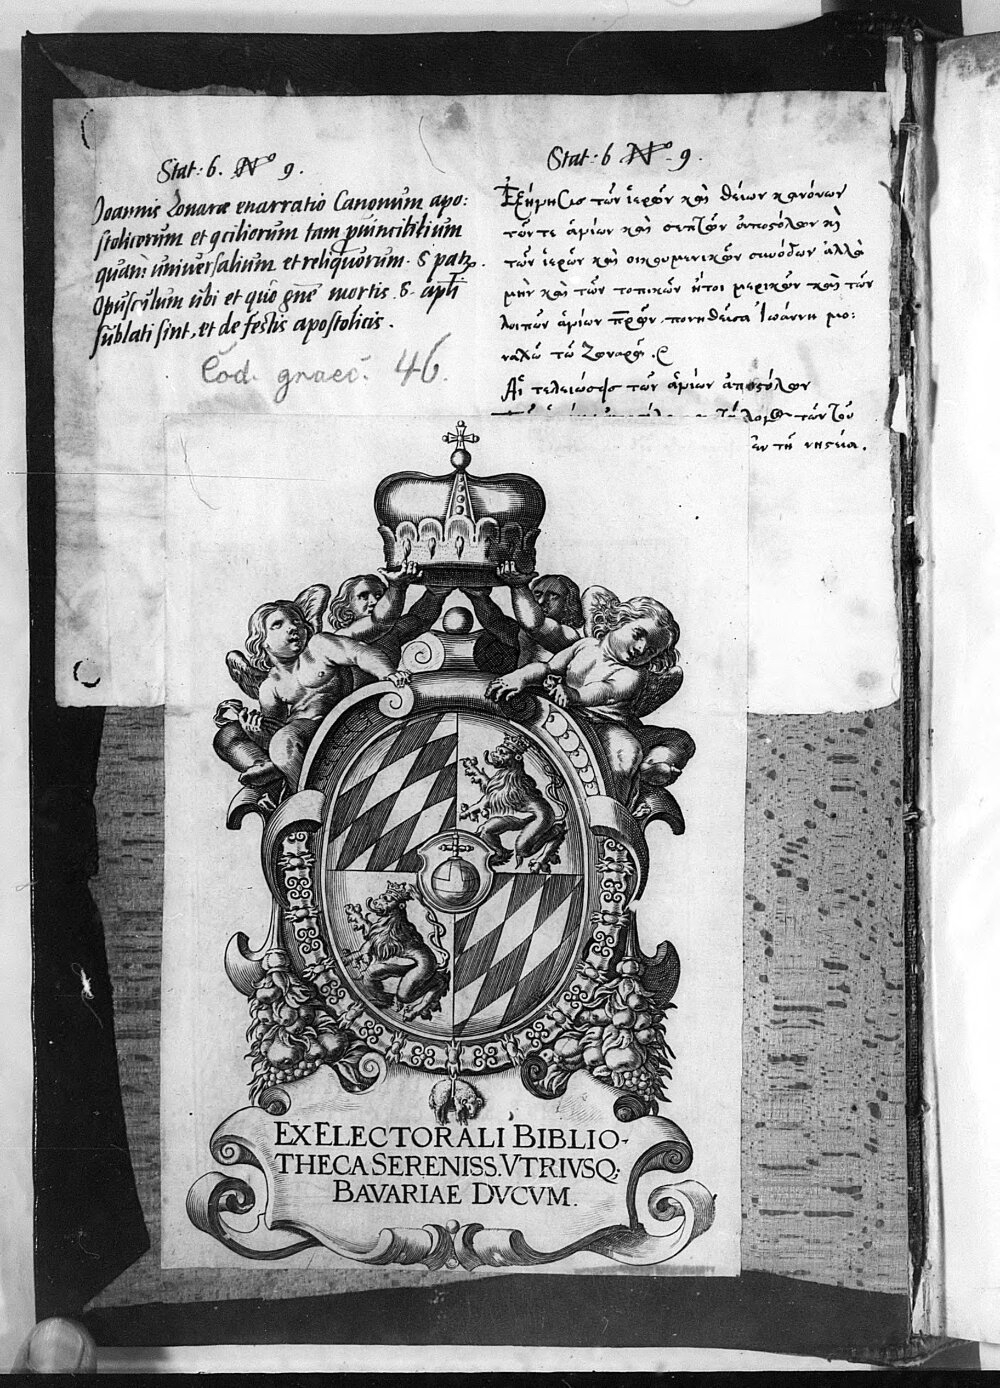 Stat: 6. No 9.
Joannis Zonaræ enarratio Canonum apo:
stolicorum et qciliorum tam puincibilium
quam universalium et reliquorum. S. patz.
Opusculum ubi et quo gne mortis S. apli
sublati sint, et de festis apostolicis.
Cod. graec. 46.
Stat: 6 No 9.
Ἐξήγησις τῶν ἱερῶν καὶ θείων κανόνων
τῶν τε ἁγίων καὶ σεπτῶν ἀποστόλων κὶ
τῶν ἱερῶν καὶ οἰκουμενικῶν συνόδων ἀλλὰ
μὴν καὶ τῶν τοπικῶν ἤτοι μερικῶν καὶ τῶν
λοιπῶν ἁγίων πρων, πονηθεῖσα Ἰωάννῃ μο:
ναχῷ τῷ Ζωναρᾷ.
Αἱ τελειώσεις τῶν ἁγίων ἀποστόλων
ἐν τῇ νηστεία.
EX ELECTORALI BIBLIO-
THECA SERENISS. VTRIVSQ:
BAVARIAE DVCVM.